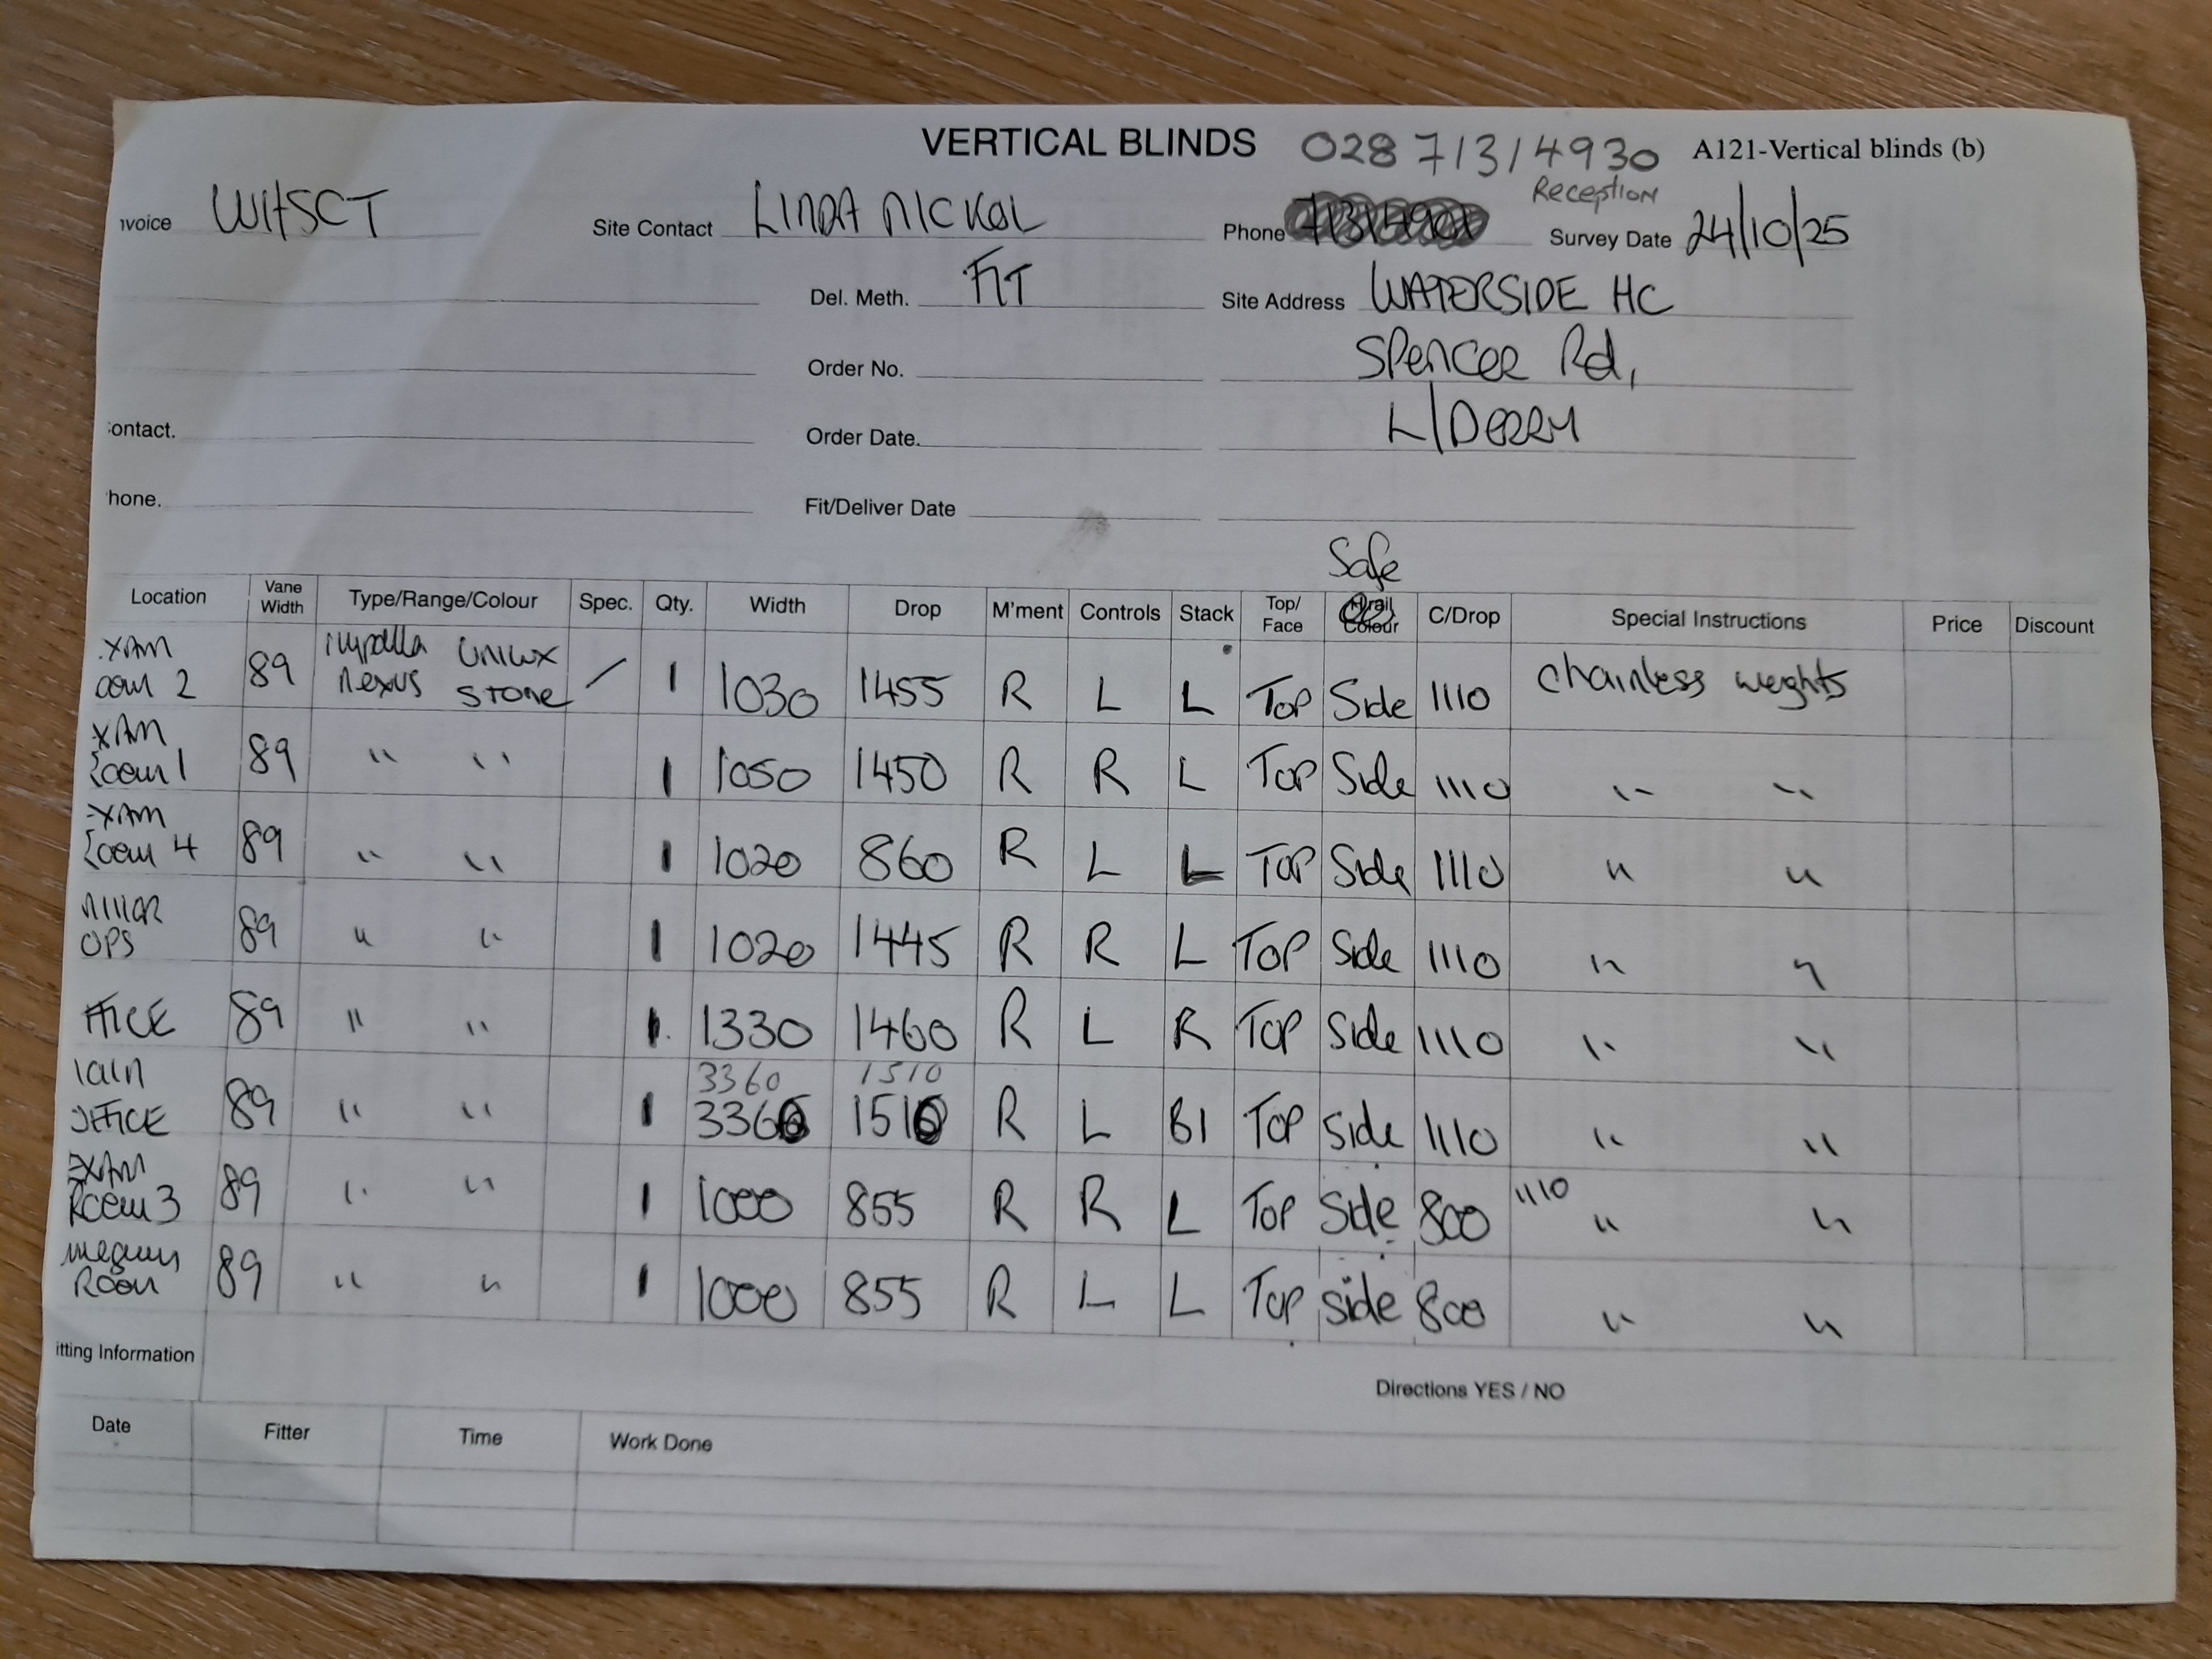 VERTICAL BLINDS 028 71314930 A121-Vertical blinds (b)
Reception
nvoice WHSCT Site Contact LINDA NICKOL Phone Survey Date 24/10/25
Del. Meth. FIT Site Address WATERSIDE HC
Order No. SPENCER Rd,
ontact. Order Date. L/DERRY
hone. Fit/Deliver Date
Safe
Location Vane Width Type/Range/Colour Spec. Qty. Width Drop M'ment Controls Stack Top/Face H/rail Colour C/Drop Special Instructions Price Discount
XAM oom 2 89 nexus UNILUX STONE / 1 1030 1455 R L L TOP Side 1110 chainless weights
XAM Room 1 89 " " 1 1050 1450 R R L TOP Side 1110 " "
EXAM Room 4 89 " " 1 1020 860 R L L TOP Side 1110 " "
MINOR OPS 89 " " 1 1020 1445 R R L TOP Side 1110 " "
FFICE 89 " " 1 1330 1460 R L R TOP Side 1110 " "
3360 1510
OFFICE 89 " " 1 3360 1510 R L BI TOP Side 1110 " "
EXAM Room 3 89 " " 1 1000 855 R R L TOP Side 800 1110 " "
Room 89 " " 1 1000 855 R L L TOP side 800 " "
itting Information
Directions YES / NO
Date Fitter Time Work Done